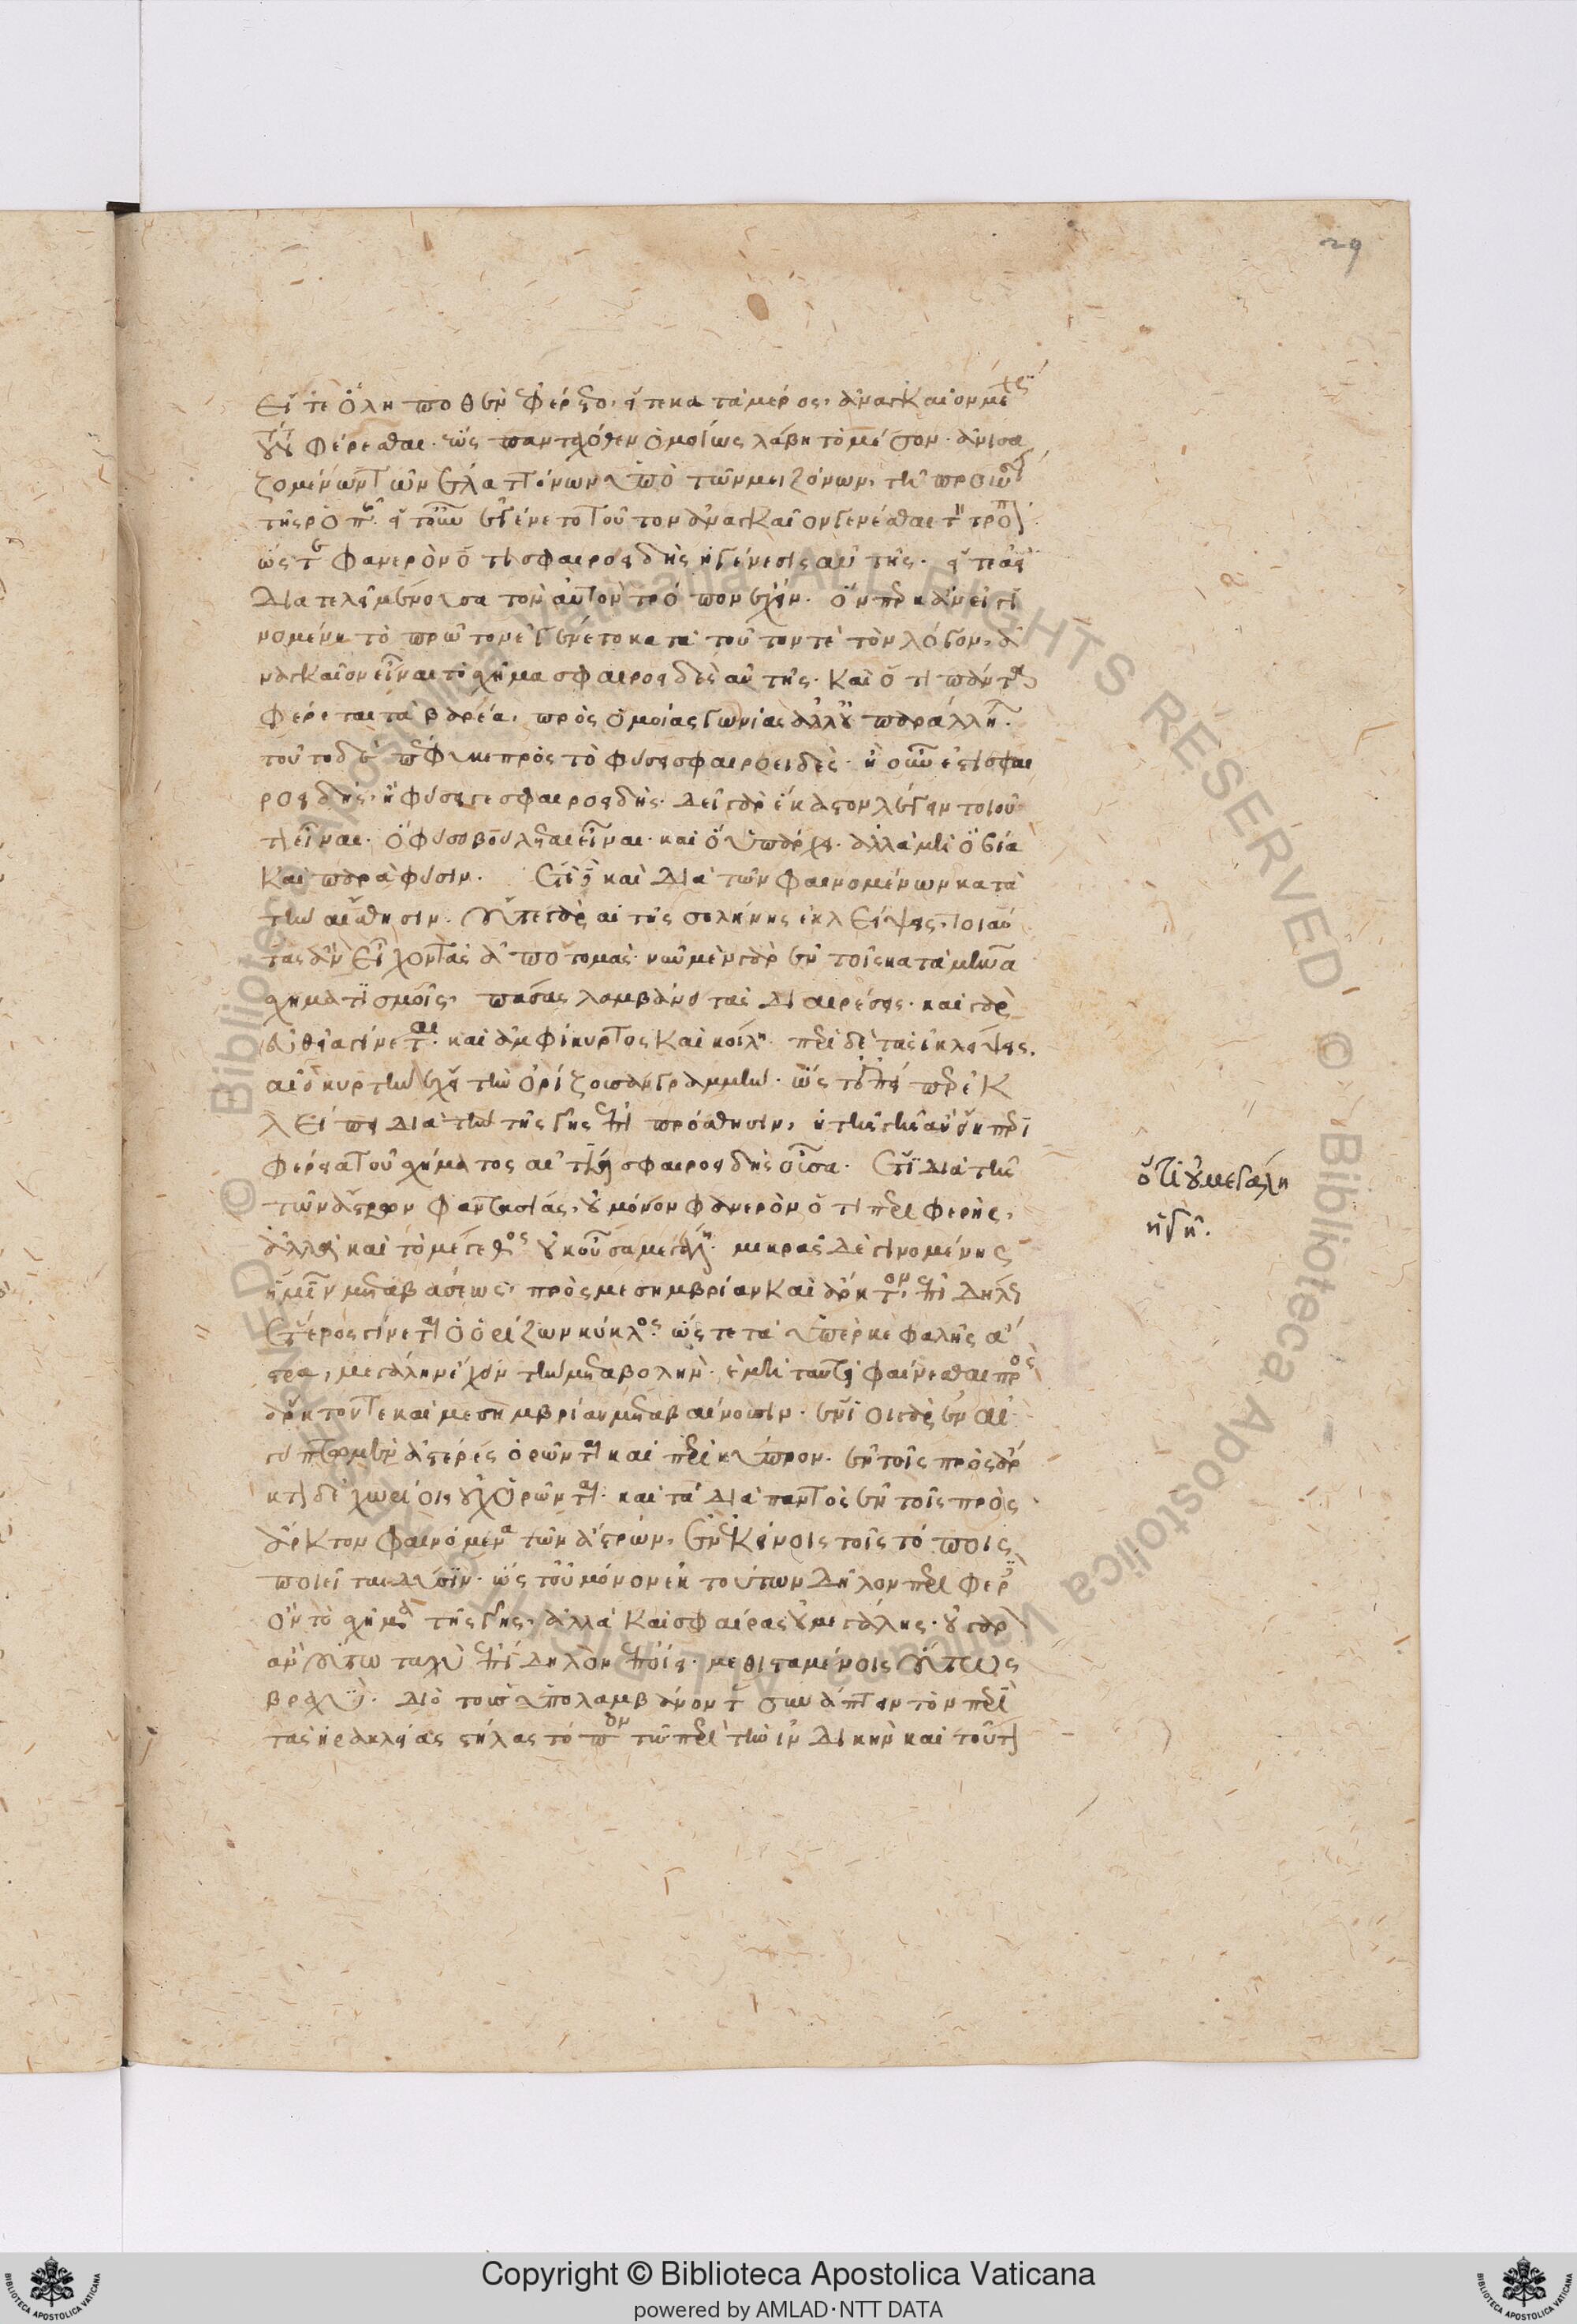 29
εἴτε ὅλη ποθὲν φέροιτο, εἴτε κατὰ μέρος, ἀναγκαῖον μέχρι
τούτου φέρεσθαι. ἕως πανταχόθεν ὁμοίως λάβη τὸ μέσον. ἀνισα
ζομένων τῶν ἐλαττόνων ὑπὸ τῶν μειζόνων, τῆ προώσει
τῆς ῥοπῆς. εἴτ' οὖν ἐγένετο τοῦτον ἀναγκαῖον γενέσθαι τὸν τρόπον
ὥστε φανερὸν ὅτι σφαιροειδὴς ἡ γένεσις αὐτῆς. εἴτε ἀεὶ
διατελεῖ μένουσα τὸν αὐτὸν τρόπον ἔχειν. ὅνπερ κἂν εἰ γι
νομένη τὸ πρῶτον ἐγένετο κατὰ τοῦτόν τε τὸν λόγον, ἀ
ναγκαῖον εἶναι τὸ σχῆμα σφαιροειδὲς αὐτῆς. καὶ ὅτι πάντα
φέρεται τὰ βαρέα, πρὸς ὁμοίας γωνίας ἀλλ' οὐ παράλληλα.
τοῦτο δὲ πέφυκε πρὸς τὸ φύσει σφαιροειδές. ἢ οὖν ἐστι σφαι
ροειδής, ἢ φύσει γε σφαιροειδής. δεῖ γὰρ ἕκαστον λέγειν τοιοῦ
τον εἶναι. ὃ φύσει βούλεται εἶναι. καὶ ὃ ὑπάρχει. ἀλλὰ μὴ ὃ βία
καὶ παρὰ φύσιν. ἔτι δὲ καὶ διὰ τῶν φαινομένων κατὰ
τὴν αἴσθησιν. οὔτε γὰρ αἱ τῆς σελήνης ἐκλείψεις, τοιαύ
τας ἂν εἶχον τὰς ἀποτομάς. νῦν μὲν γὰρ ἐν τοῖς κατὰ μῆνα
σχηματισμοῖς, πάσας λαμβάνει τὰς διαιρέσεις. καὶ γὰρ
εὐθεῖα γίνεται. καὶ ἀμφίκυρτος καὶ κοίλη. περὶ δὲ τὰς ἐκλείψεις,
ἀεὶ κυρτὴν ἔχει τὴν ὁρίζουσαν γραμμήν. ὥστ' ἐπείπερ ἐκ
λείπει διὰ τὴν τῆς γῆς ἐπιπρόσθησιν, ἡ τῆς γῆς ἂν εἴη περι
φέρεια τοῦ σχήματος αἰτία σφαιροειδὴς οὖσα. ἔτι διὰ τῆς
τῶν ἄστρων φαντασίας, οὐ μόνον φανερὸν ὅτι περιφερής,
ἀλλὰ καὶ τὸ μέγεθος οὐκ οὖσα μεγάλη. μικρᾶς δὲ γινομένης
ἡμῖν μεταβάσεως, πρὸς μεσημβρίαν καὶ ἄρκτον, ἐπιδήλως
ἕτερος γίνεται ὁ ὁρίζων κύκλος. ὥστε τὰ ὑπὲρ κεφαλῆς ἄ
στρα, μεγάλην ἔχειν τὴν μεταβολήν. καὶ μὴ ταὐτὰ φαίνεσθαι πρὸς
ἄρκτον τε καὶ μεσημβρίαν μεταβαίνουσιν. ἔνιοι γὰρ ἐν αἰ
γύπτῳ μὲν ἀστέρες ὁρῶνται καὶ περὶ κύπρον. ἐν τοῖς πρὸς ἄρ
κτον δὲ χωρίοις οὐχ ὁρῶνται. καὶ τὰ διὰ παντὸς ἐν τοῖς πρὸς
ἄρκτον φαινόμενα τῶν ἄστρων, ἐν ἐκείνοις τοῖς τόποις
ποιεῖται δύσιν. ὥστ' οὐ μόνον ἐκ τούτων δῆλον περιφερὲς
ὂν τὸ σχῆμα τῆς γῆς, ἀλλὰ καὶ σφαίρας οὐ μεγάλης. οὐ γὰρ
ἂν οὕτω ταχὺ ἐπίδηλον ἐποίει. μεθισταμένοις οὕτως
βραχύ. διὸ τοὺς ὑπολαμβάνοντας συνάπτειν τὸν περὶ
τὰς ἡρακλείας στήλας τόπον τῷ περὶ τὴν ἰνδικὴν καὶ τοῦτον
ὅτι οὐ μεγάλη
ἡ γῆ.
Copyright © Biblioteca Apostolica Vaticana
powered by AMLAD·NTT DATA